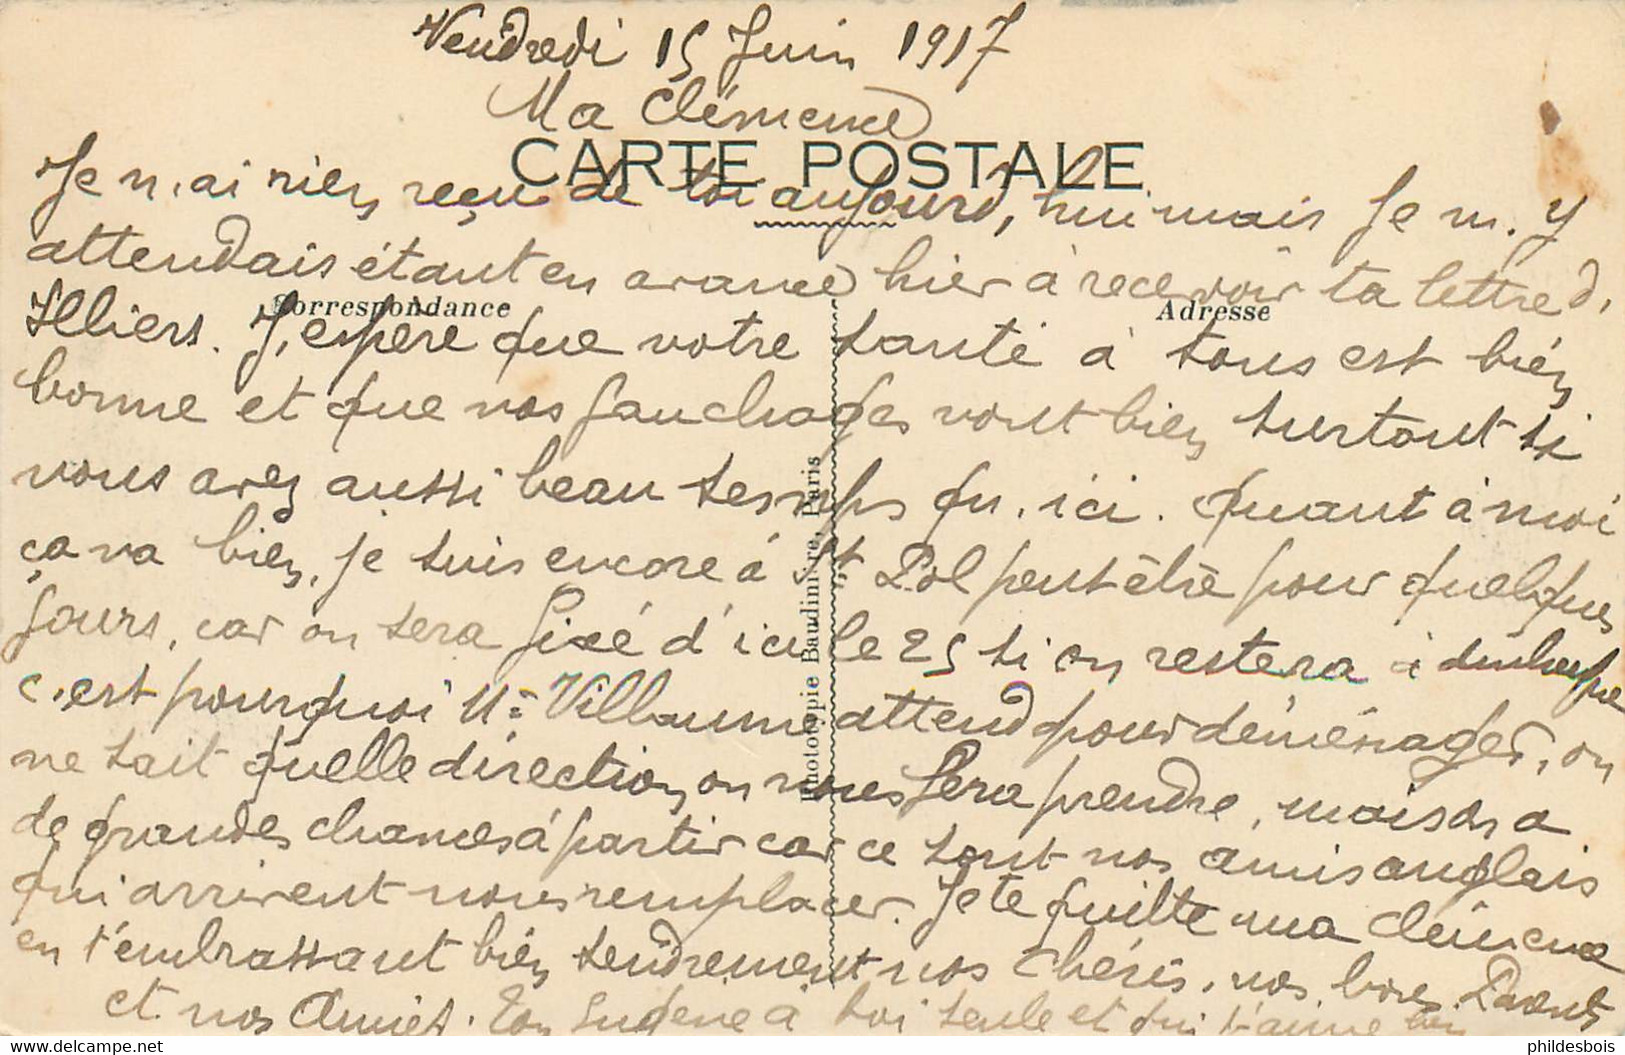 Vendredi 15 Juin 1917
Ma Clémence
CARTE POSTALE
Je n'ai rien reçu de toi aujourd'hui mais je m'y
attendais étant en avance hier à recevoir ta lettre d'
Correspondance
Adresse
Illiers. J'espère que votre santé à tous est bien
bonne et que vos fauchages vont bien surtout si
vous avez aussi beau temps qu'ici. Quant à moi
ça va bien, je suis encore à St Pol peut être pour quelques
jours, car on sera fixé d'ici le 25 si on restera à
c'est pourquoi Mr Villaume attend pour déménager, on
ne sait quelle direction on nous fera prendre, mais on a
de grandes chances à partir car ce sont nos amis anglais
qui arrivent nous remplacer. Je te quitte ma Clémence
en t'embrassant bien tendrement nos chéris, nos bons Parents
et nos Amies. Ton Eugène à toi seule et qui t'aime bien
Phototypie Baudinière, Paris
phildesbois